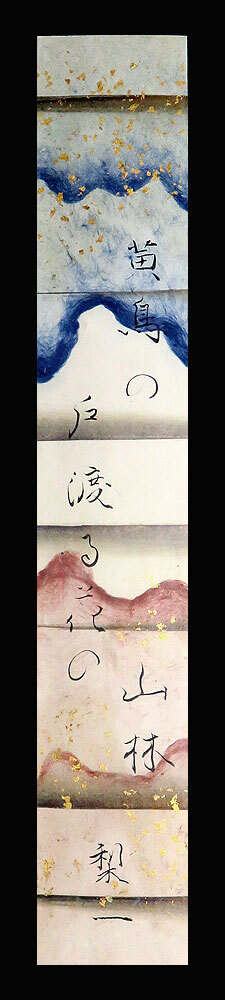 黄鳥の
戸渡る花の
山林
梨一